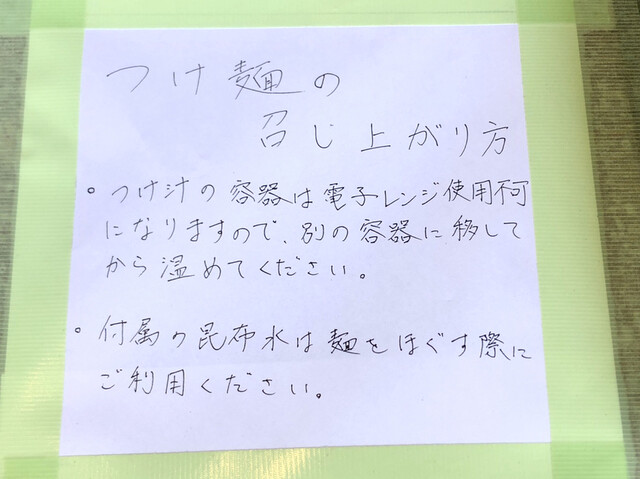 つけ麺の
召し上がり方
。つけ汁の容器は電子レンジ使用不可
になりますので、別の容器に移して
から温めてください。
。付属の昆布水は麺をほぐす際に
ご利用ください。